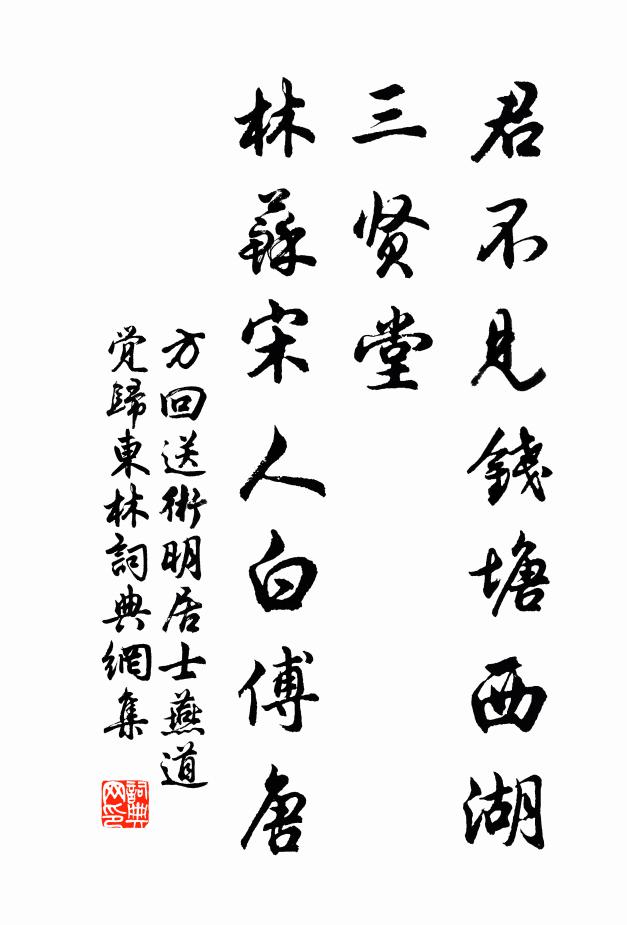 君不見錢塘西湖
三贤堂
林蘇宋人白傅唐
方回送術明居士燕道
觉歸東林詞典網集
詞典网印